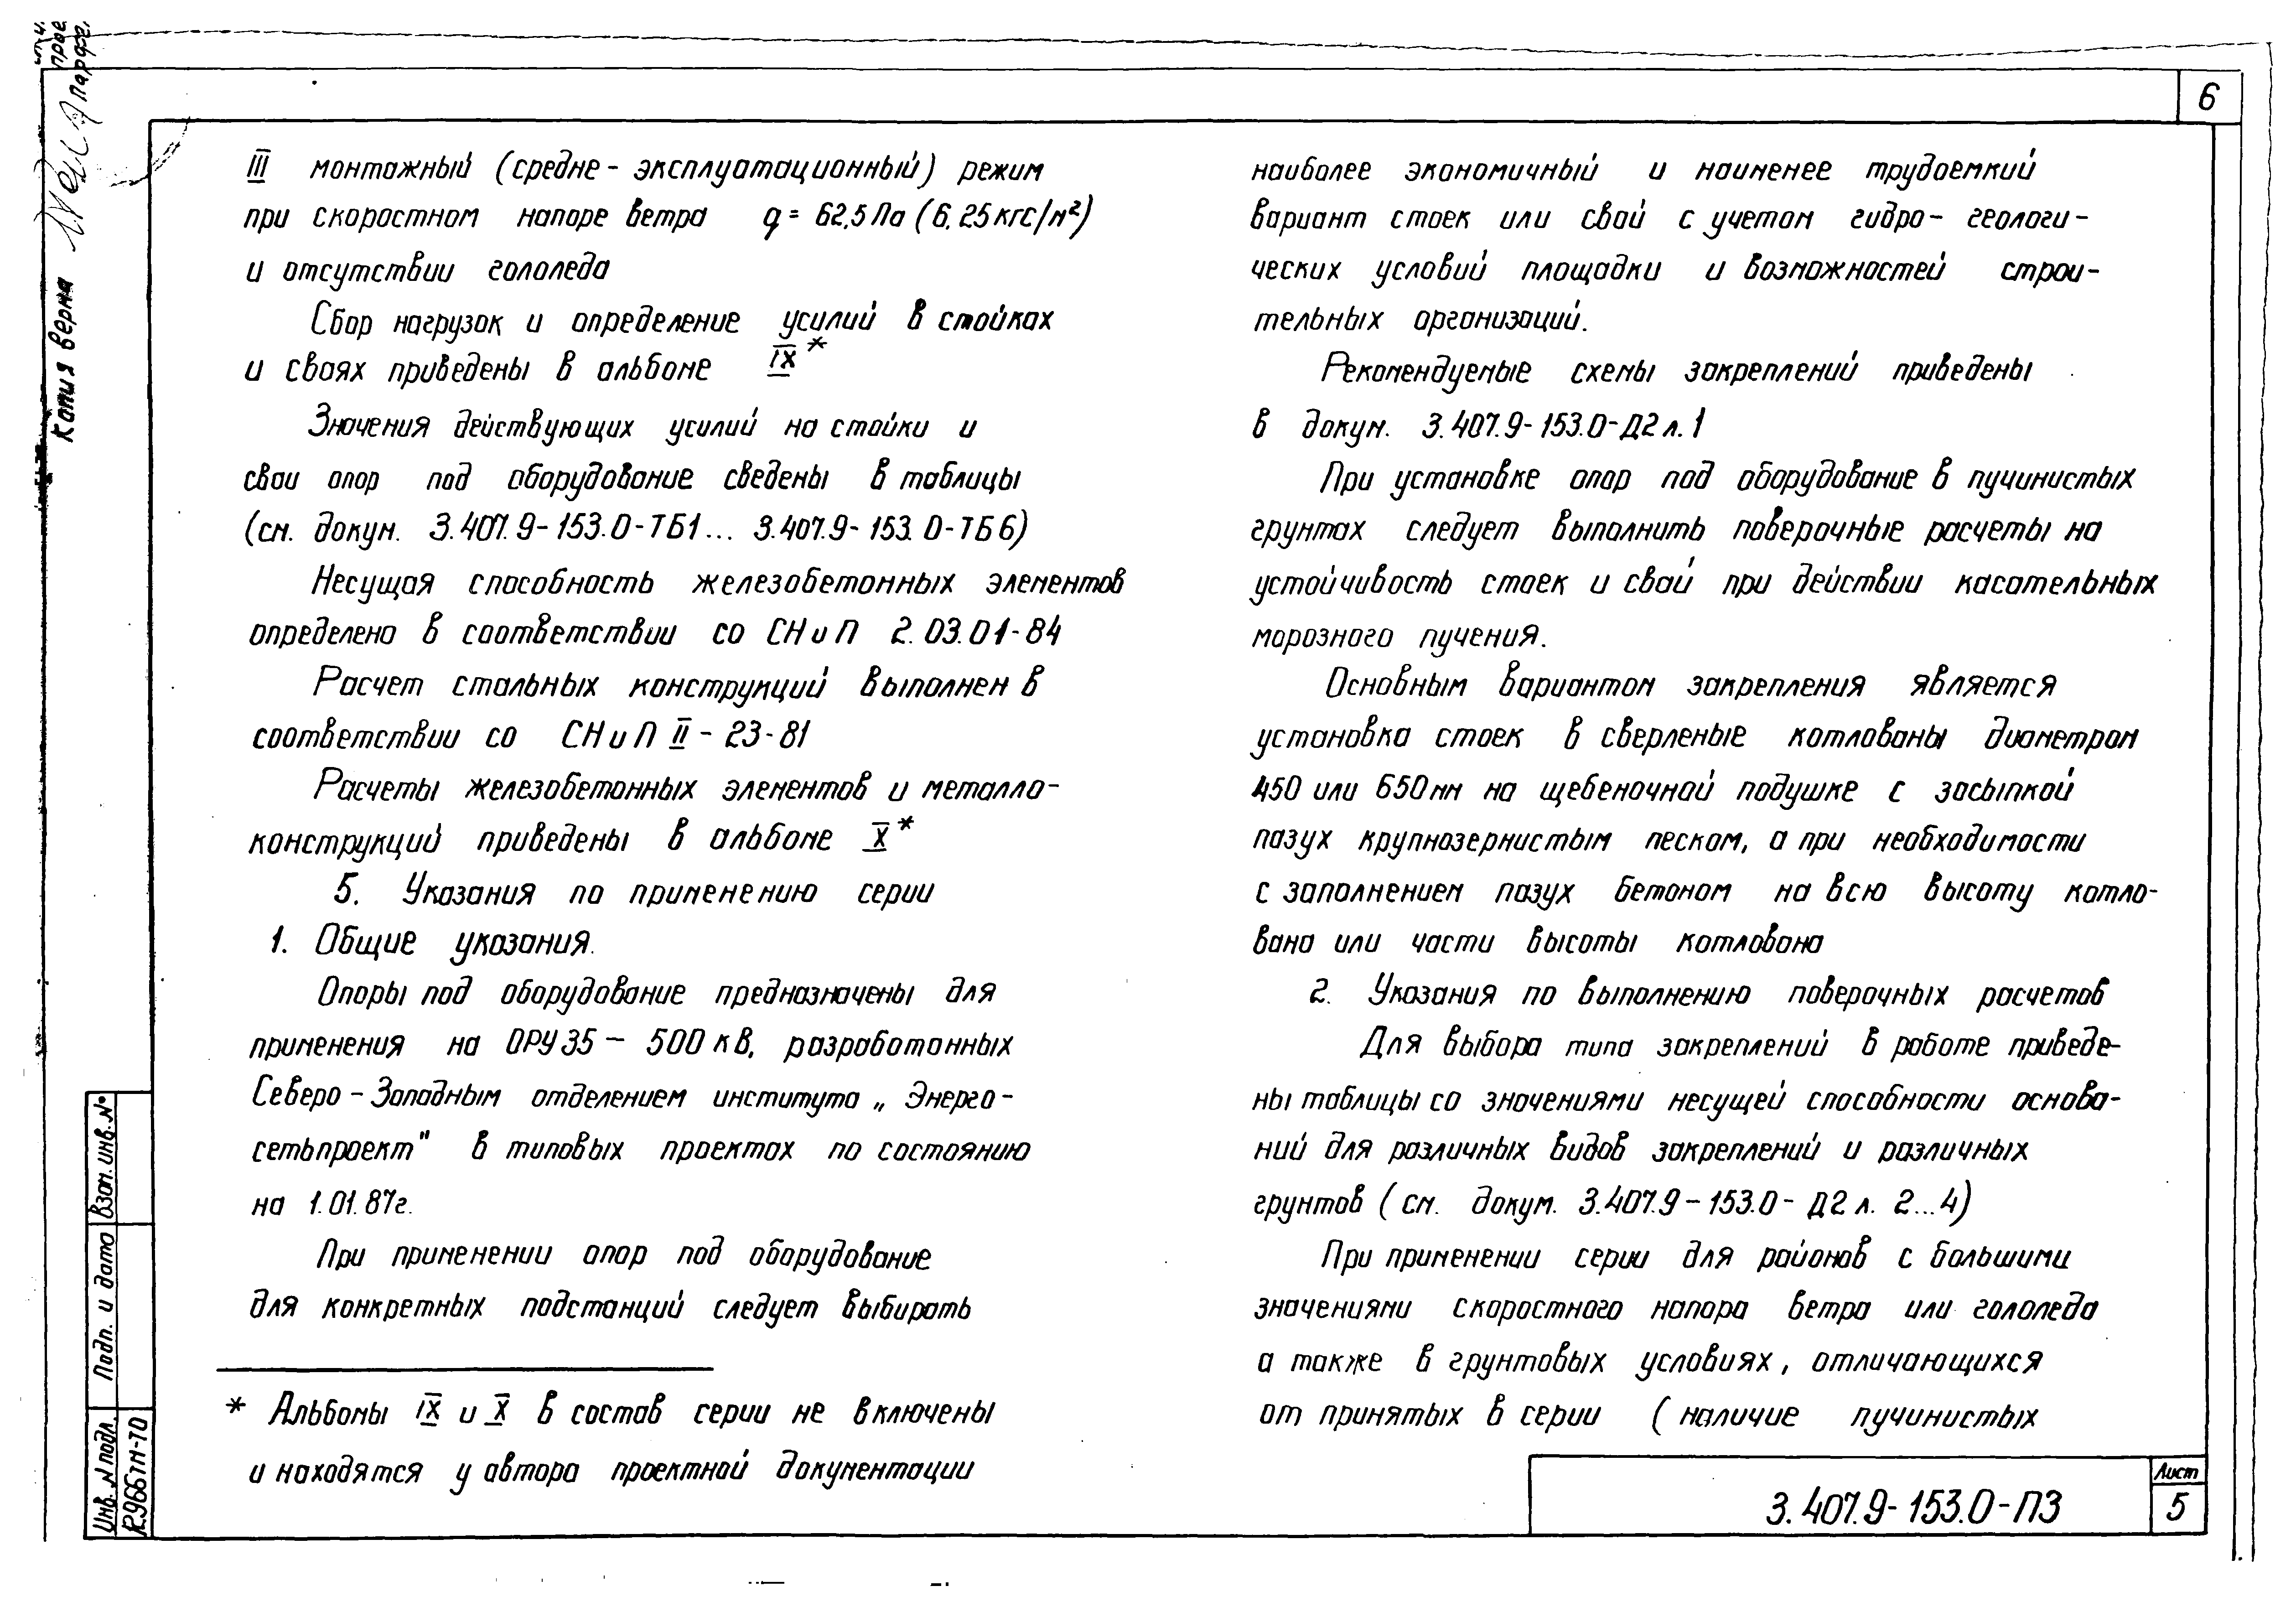 6
III монтажный (средне-эксплуатационный) режим
при скоростном напоре ветра q = 62,5 Па (6,25 кгс/м²)
и отсутствии гололеда
Сбор нагрузок и определение усилий в стойках
и сваях приведены в альбоме IX*
Значения действующих усилий на стойки и
сваи опор под оборудование сведены в таблицы
(см. докум. 3.407.9-153.0-ТБ1... 3.407.9-153.0-ТБ6)
Несущая способность железобетонных элементов
определена в соответствии со СНиП 2.03.01-84
Расчет стальных конструкций выполнен в
соответствии со СНиП II-23-81
Расчеты железобетонных элементов и металло-
конструкций приведены в альбоме X*
5. Указания по применению серии
1. Общие указания.
Опоры под оборудование предназначены для
применения на ОРУ 35 – 500 кВ, разработанных
Северо-Западным отделением института „Энерго-
сетьпроект" в типовых проектах по состоянию
на 1.01.87г.
При применении опор под оборудование
для конкретных подстанций следует выбирать
* Альбомы IX и X в состав серии не включены
и находятся у автора проектной документации
наиболее экономичный и наименее трудоемкий
вариант стоек или свай с учетом гидро-геологи-
ческих условий площадки и возможностей строи-
тельных организаций.
Рекомендуемые схемы закреплений приведены
в докум. 3.407.9-153.0-Д2 л.1
При установке опор под оборудование в пучинистых
грунтах следует выполнить поверочные расчеты на
устойчивость стоек и свай при действии касательных
морозного пучения.
Основным вариантом закрепления является
установка стоек в сверленые котлованы диаметром
450 или 650мм на щебеночной подушке с засыпкой
пазух крупнозернистым песком, а при необходимости
с заполнением пазух бетоном на всю высоту котло-
вана или части высоты котлована
2. Указания по выполнению поверочных расчетов
Для выбора типа закреплений в работе приведе-
ны таблицы со значениями несущей способности основа-
ний для различных видов закреплений и различных
грунтов (см. докум. 3.407.9-153.0-Д2 л. 2...4)
При применении серии для районов с большими
значениями скоростного напора ветра или гололеда
а также в грунтовых условиях, отличающихся
от принятых в серии (наличие пучинистых
3.407.9-153.0-ПЗ
Лист
5
Копия верна
Взам. инв. №
Подп. и дата
Инв. № подл.